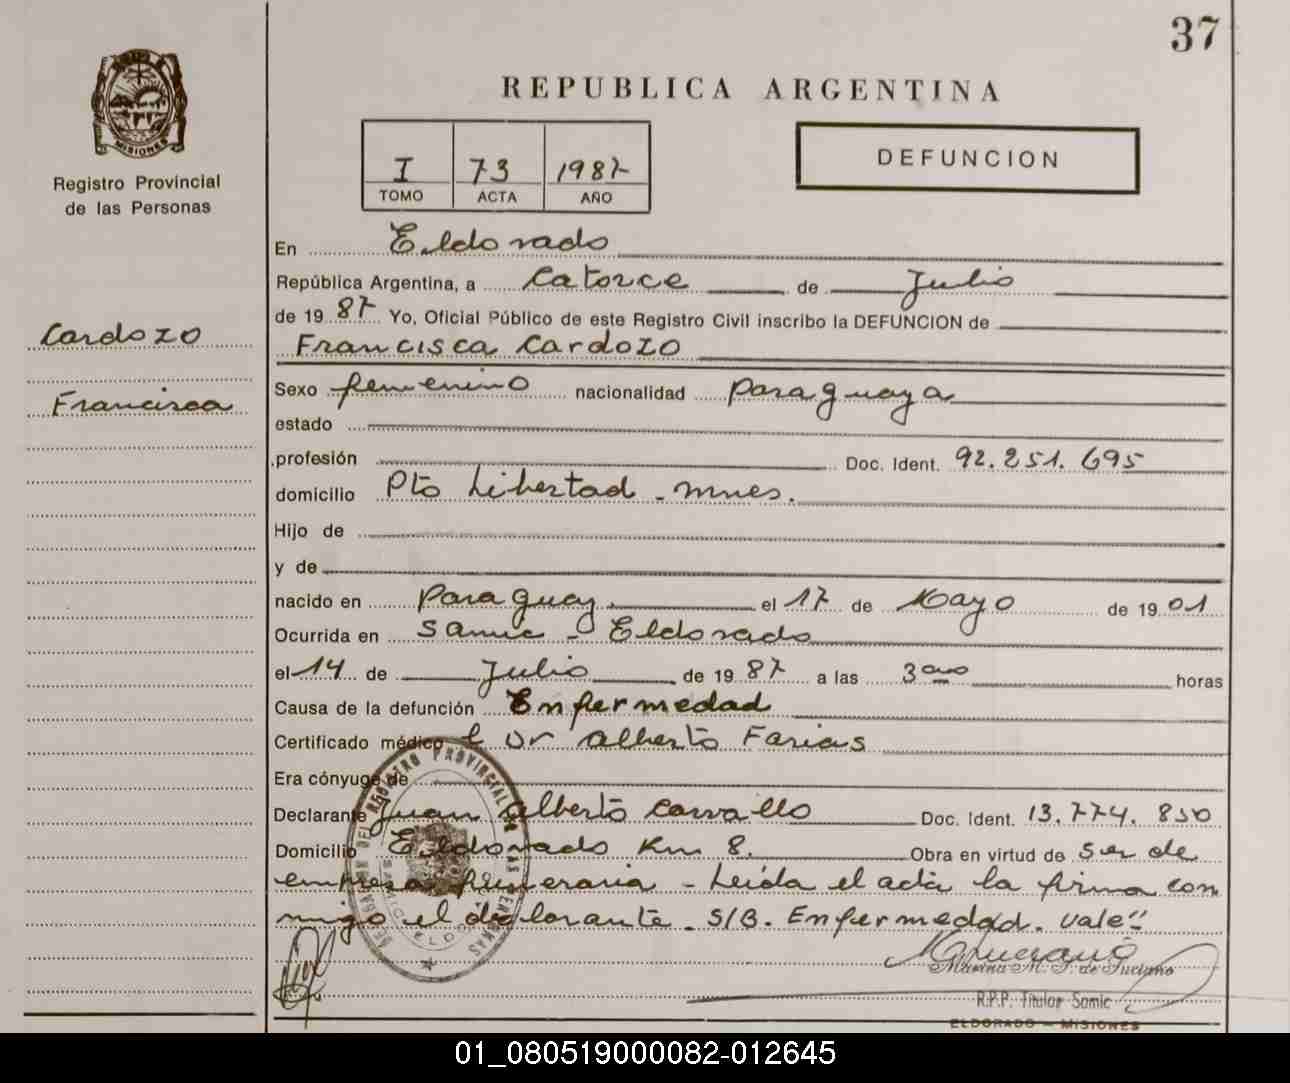 37
REPUBLICA ARGENTINA
MISIONES
Registro Provincial
de las Personas
I 73 1987
TOMO ACTA AÑO
DEFUNCION
Cardozo
Francisca
En Eldorado
República Argentina, a Catorce de Julio
de 1987 Yo, Oficial Público de este Registro Civil inscribo la DEFUNCION de
Francisca Cardozo
Sexo femenino nacionalidad Paraguaya
estado
profesión Doc. Ident. 92.251.695
domicilio Pto Libertad - Mnes.
Hijo de
y de
nacido en Paraguay el 17 de Mayo de 1901
Ocurrida en Samic - Eldorado
el 14 de Julio de 1987 a las 3 horas
Causa de la defunción Enfermedad
Certificado médico Dr Alberto Farias
Era cónyuge de
Declarante Juan Alberto Carvallo Doc. Ident. 13.774.850
Domicilio Eldorado Km 8. Obra en virtud de ser de
empresa funeraria - Leida el acta la firma con
migo el declarante. S/B. Enfermedad. Vale"
R.P.P. Titular Samic
ELDORADO - MISIONES
01_080519000082-012645